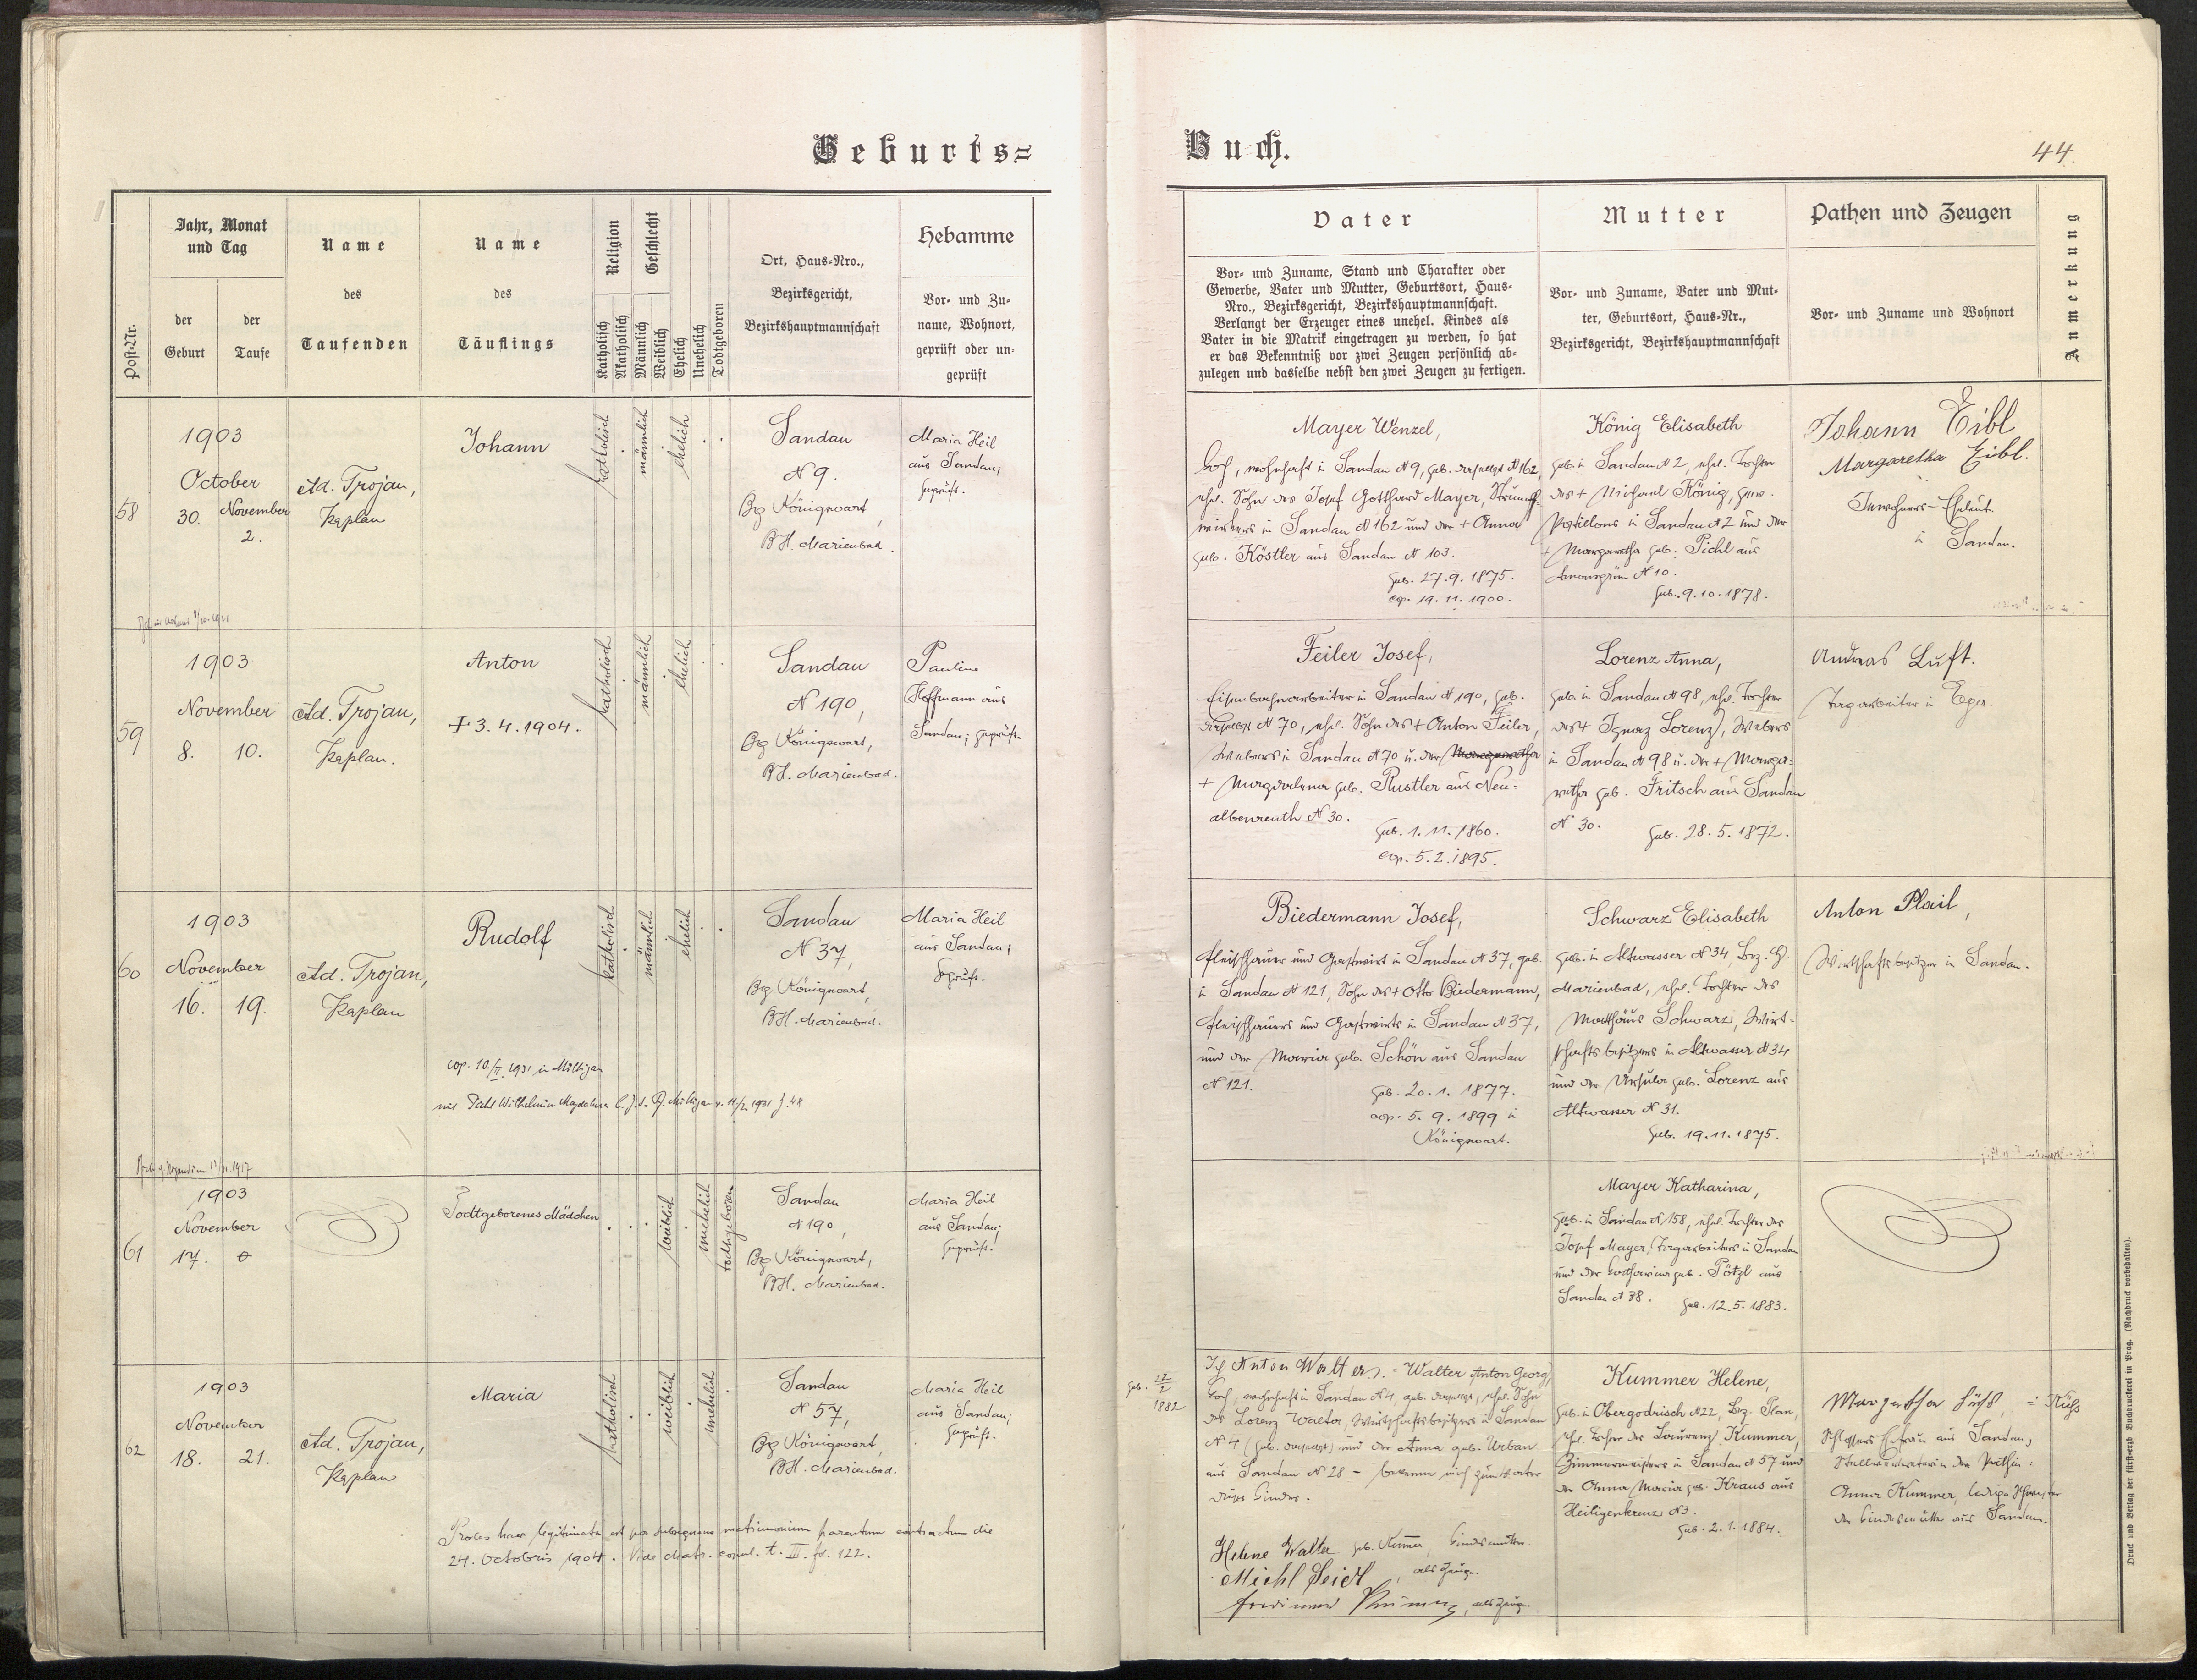 Geburts=
Buch.
44.
Post-Nr.
Jahr, Monat
und Tag
der
Geburt
der
Taufe
Name
des
Taufenden
Name
des
Täuflings
Religion
Katholisch
Akatholisch
Geschlecht
Männlich
Weiblich
Ehelich
Unehelich
Todtgeboren
Ort, Haus-Nro.,
Bezirksgericht,
Bezirkshauptmannschaft
Hebamme
Vor- und Zu-
name, Wohnort,
geprüft oder un-
geprüft
Vater
Vor- und Zuname, Stand und Charakter oder
Gewerbe, Vater und Mutter, Geburtsort, Haus-
Nro., Bezirksgericht, Bezirkshauptmannschaft.
Verlangt der Erzeuger eines unehel. Kindes als
Vater in die Matrik eingetragen zu werden, so hat
er das Bekenntniß vor zwei Zeugen persönlich ab-
zulegen und dasselbe nebst den zwei Zeugen zu fertigen.
Mutter
Vor- und Zuname, Vater und Mut-
ter, Geburtsort, Haus-Nr.,
Bezirksgericht, Bezirkshauptmannschaft
Pathen und Zeugen
Vor- und Zuname und Wohnort
Anmerkung
58
1903
October
30.
November
2.
Ad. Trojan,
Kaplan
Johann
katholisch
männlich
ehelich
Sandau
N 9.
Bg Königswart,
BH. Marienbad.
Maria Heil
aus Sandau,
geprüft.
Mayer Wenzel,
wohnhaft in Sandau N 9, geb. daselbst N 162,
ehel. Sohn des Josef Gotthard Mayer, Strumpf-
wirkers in Sandau N 162 und der + Anna
geb. Köstler aus Sandau N 103.
geb. 27.9.1875.
cop. 19.11.1900.
König Elisabeth
geb. in Sandau N 2, ehel. Tochter
des + Michael König, gew.
Postillons in Sandau N 2 und der
+ Margaretha geb. Pichl aus
N 10.
geb. 9.10.1878.
Johann Eibl
Margaretha Eibl.
Inwohners-Eheleute
in Sandau.
59
1903
November
8.
10.
Ad. Trojan,
Kaplan.
Anton
+ 3.4.1904.
katholisch
männlich
ehelich
Sandau
N 190,
Bg Königswart,
BH. Marienbad.
Pauline
Hoffmann aus
Sandau; geprüft.
Feiler Josef,
Eisenbahnarbeiter in Sandau N 190, geb.
daselbst N 70, ehel. Sohn des + Anton Feiler,
Webers in Sandau N 70 u. der Margaretha
+ Magdalena geb. Rustler aus Neu-
albenreuth N 30.
geb. 1.11.1860.
cop. 5.2.1895.
Lorenz Anna,
geb. in Sandau N 98, ehel. Tochter
des + Ignaz Lorenz, Webers
in Sandau N 98 u. der + Marga=
retha geb. Fritsch aus Sandau
N 30.
geb. 28.5.1872.
Andreas Luft.
Tagarbeiter in Eger.
60
1903
November
16.
19.
Ad. Trojan,
Kaplan
Rudolf
katholisch
männlich
ehelich
Sandau
N 37,
Bg Königswart,
BH. Marienbad.
Maria Heil
aus Sandau;
geprüft.
cop. 10./II. 1931 in Miltigau
mit Pichl Wilhelmine Magdalena
Biedermann Josef,
Fleischhauer und Gastwirt in Sandau N 37, geb.
in Sandau N 121, Sohn des + Otto Biedermann,
Fleischhauers und Gastwirts in Sandau N 37,
und der Maria geb. Schön aus Sandau
N 121.
geb. 20.1.1877.
cop. 5.9.1899 in
Königswart.
Schwarz Elisabeth
geb. in Altwasser N 34, Bez. H.
Marienbad, ehel. Tochter des
Matthäus Schwarz, Wirt-
schaftsbesitzers in Altwasser N 34
und der Ursula geb. Lorenz aus
Altwasser N 31.
geb. 19.11.1875.
Anton Plail,
Wirtschaftsbesitzer in Sandau.
61
1903
November
17.
Todtgeborenes Mädchen
weiblich
unehelich
todtgeboren
Sandau
N 190,
Bg Königswart,
BH. Marienbad.
Maria Heil
aus Sandau;
geprüft.
Mayer Katharina,
geb. in Sandau N 158, ehel. Tochter des
Josef Mayer, Tagarbeiters in Sandau
und der Katharina geb. Pötzl aus
Sandau N 38.
geb. 12.5.1883.
62
1903
November
18.
21.
Ad. Trojan,
Kaplan
Maria
katholisch
weiblich
unehelich
Sandau
N 57,
Bg Königswart,
BH. Marienbad.
Maria Heil
aus Sandau;
geprüft.
Proles haec legitimata est per subsequens matrimonium parentum contractum die
24. Octobris 1904. Vide Matr. copul. t. III. fol. 122.
geb. 27/2 1882
Ich Anton Walter, = Walter Anton Georg,
wohnhaft in Sandau N 4, geb. daselbst, ehel. Sohn
des Lorenz Walter, Wirtschaftsbesitzers in Sandau
N 4 (geb. daselbst) und der Anna geb. Urban
aus Sandau N 28 – bekenne mich zum Vater
dieses Kindes.
Helene Walter geb. Kummer, Kindesmutter.
Michl Seidl, als Zeuge.
Ferdinand als Zeuge
Kummer Helene,
geb. in Obergodrisch N 22, Bez. Plan,
ehel. Tochter des Laurenz Kummer,
Zimmermeisters in Sandau N 57 und
der Anna Maria geb. Kraus aus
Heiligenkreuz N 3.
geb. 2.1.1884.
Margaretha Füchs, = Füchs
Schlossers Ehefrau aus Sandau,
Stellvertreterin der Pathin:
Anna Kummer, ledige Schwester
der Kindesmutter aus Sandau.
Druck und Verlag der fürsterzb. Buchdruckerei in Prag. (Nachdruck vorbehalten).